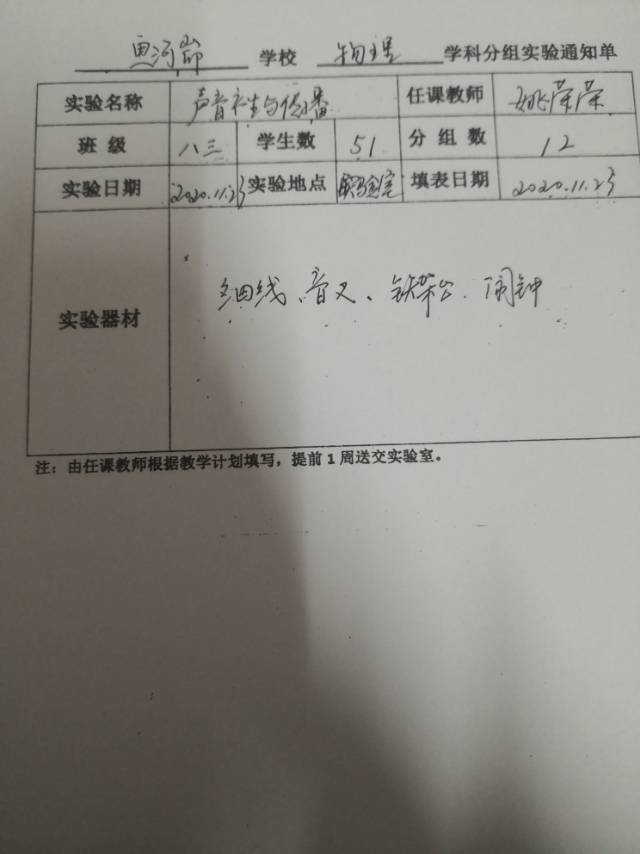 惠河崤 学校 物理 学科分组实验通知单
实验名称 声音产生与传播 任课教师 姚荣荣
班级 八三 学生数 51 分组数 12
实验日期 2020.11.23 实验地点 实验室 填表日期 2020.11.23
实验器材 细线、音叉、铁架台、闹钟
注：由任课教师根据教学计划填写，提前1周送交实验室。